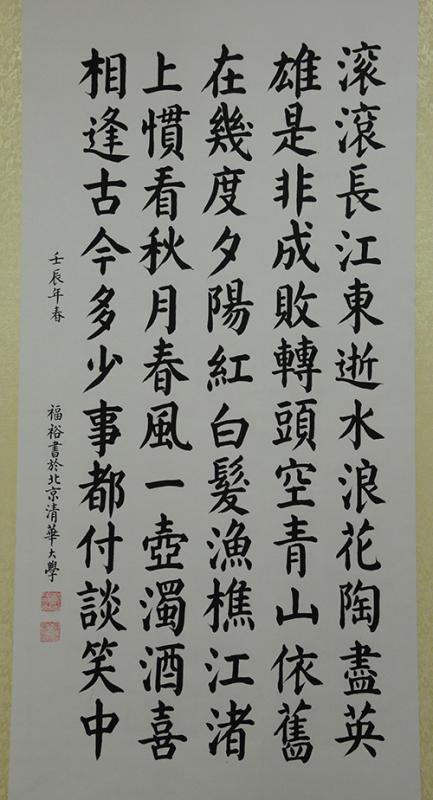 滚滾長江東逝水浪花陶盡英
雄是非成敗轉頭空青山依舊
在幾度夕陽紅白髮漁樵江渚
上慣看秋月春風一壺濁酒喜
相逢古今多少事都付談笑中
壬辰年春
福裕書於北京清華大學